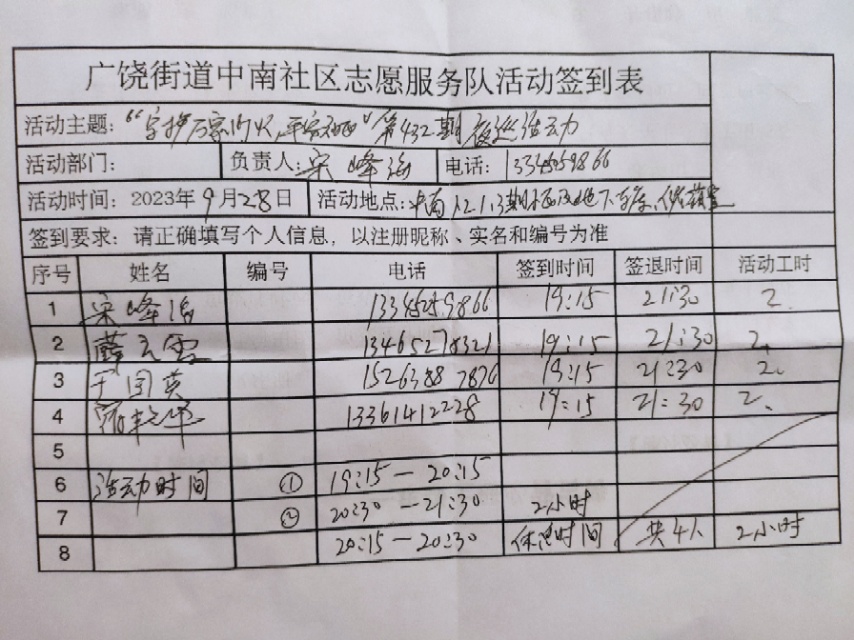 广饶街道中南社区志愿服务队活动签到表
活动主题：“守护万家灯火，平安和谐”第432期夜巡活动
活动部门： 负责人：宋峰海 电话：
活动时间：2023年9月28日 活动地点：中南
签到要求：请正确填写个人信息，以注册昵称、实名和编号为准
序号 姓名 编号 电话 签到时间 签退时间 活动工时
1 宋峰海 19:15 21:30 2.
2 薛云雷 13465278321 19:15 21:30 2.
3 于国英 15263887876 19:15 21:30 2.
4 13361412228 19:15 21:30 2.
5
6 活动时间 ① 19:15—20:15
7 ② 20:30—21:30 2小时
8 20:15—20:30 休息时间 共4人 2小时